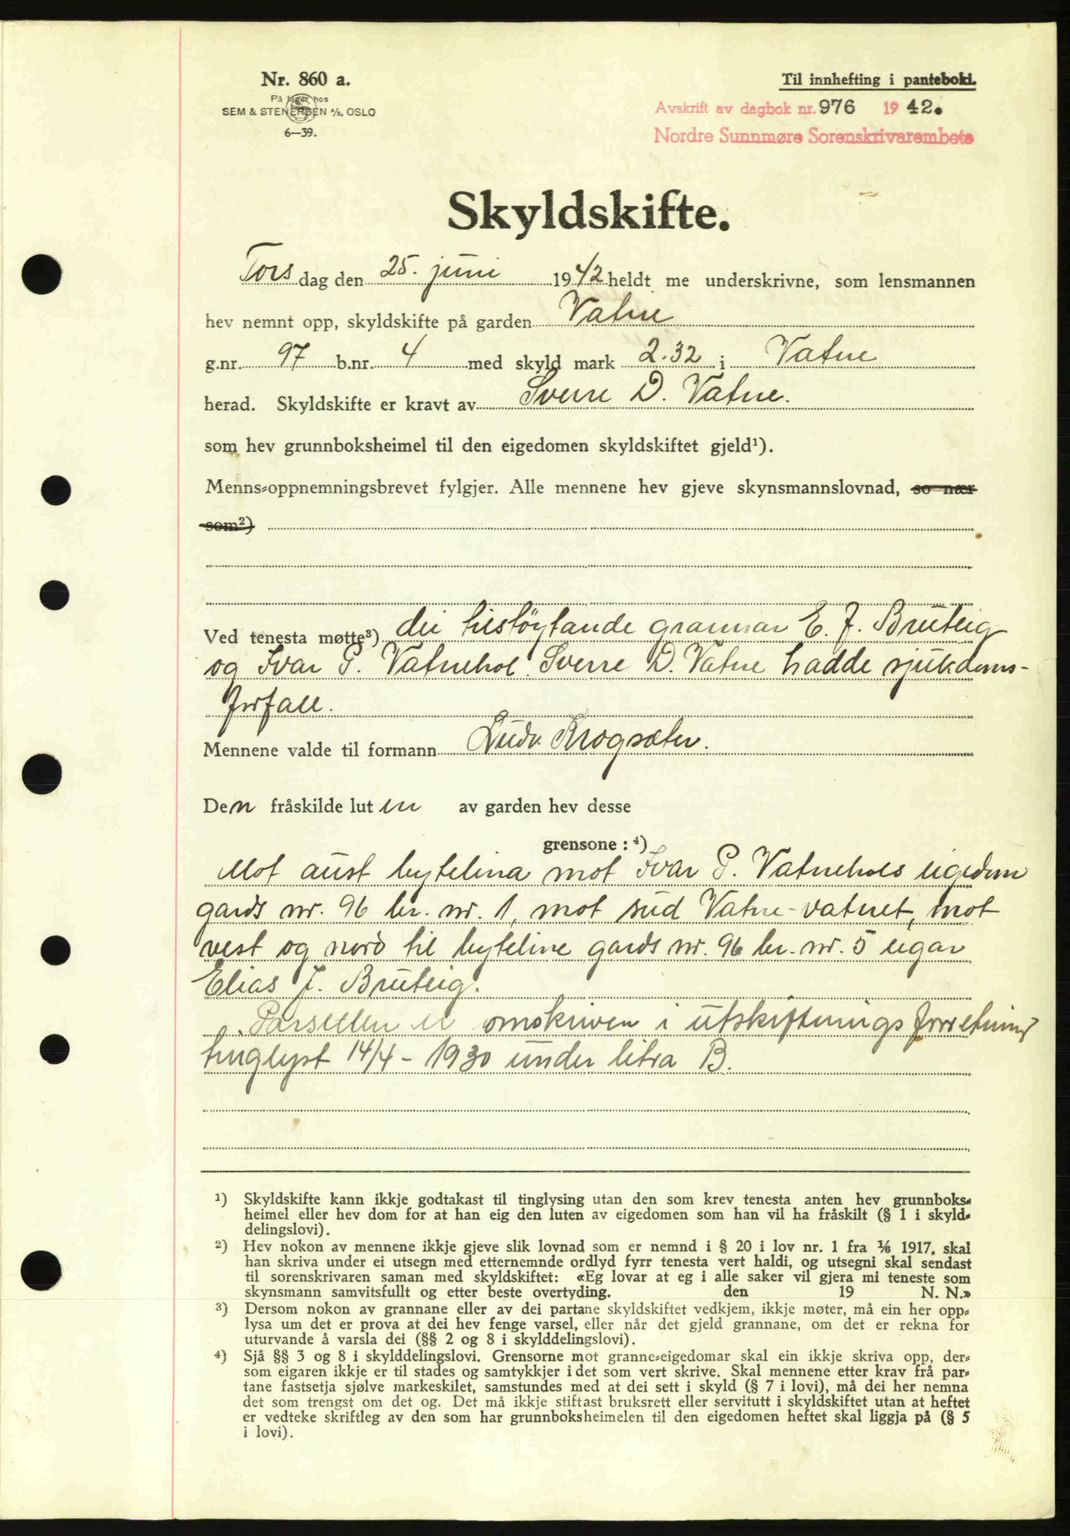 Nr. 860 a.
På lager hos
SEM & STENERSEN A/S. OSLO
6—39.
Til innhefting i pantebok.
Avskrift av dagbok nr. 976 1942.
Nordre Sunnmøre Sorenskrivarembete
Skyldskifte.
Torsdag den 25. juni 1942 heldt me underskrivne, som lensmannen
hev nemnt opp, skyldskifte på garden Vatne
g.nr. 97 b.nr. 4 med skyld mark 2.32 i Vatne
herad. Skyldskifte er kravt av Sverre D. Vatne.
som hev grunnboksheimel til den eigedomen skyldskiftet gjeld¹).
Menns-oppnemningsbrevet fylgjer. Alle mennene hev gjeve skynsmannslovnad, so nær
som²)
Ved tenesta møtte³) dei tilstöytande grannar E. J. Bruteig
og Ivar P. Vatnehol. Sverre D. Vatne hadde sjukdoms-
forfall.
Mennene valde til formann Ludv. Krogsæter.
Den fråskilde luten av garden hev desse
grensone : ⁴)
Mot aust bytelina mot Ivar P. Vatnehols eigedom
gards nr. 96 br. nr. 1, mot sud Vatne-vatnet, mot
vest og nord til byteline gards nr. 96 br. nr. 5 eigar
Elias J. Bruteig.
Parsellen er omskriven i utskiftningsforretning
tinglyst 14/4 - 1930 under litra B.
¹) Skyldskifte kann ikkje godtakast til tinglysing utan den som krev tenesta anten hev grunnboks-
heimel eller hev dom for at han eig den luten av eigedomen som han vil ha fråskilt (§ 1 i skyld-
delingslovi).
²) Hev nokon av mennene ikkje gjeve slik lovnad som er nemnd i § 20 i lov nr. 1 fra ⅙ 1917, skal
han skriva under ei utsegn med etternemnde ordlyd fyrr tenesta vert haldi, og utsegni skal sendast
til sorenskrivaren saman med skyldskiftet: «Eg lovar at eg i alle saker vil gjera mi teneste som
skynsmann samvitsfullt og etter beste overtyding. den 19 N. N.»
³) Dersom nokon av grannane eller av dei partane skyldskiftet vedkjem, ikkje møter, må ein her opp-
lysa um det er prova at dei hev fenge varsel, eller når det gjeld grannane, om det er rekna for
uturvande å varsla dei (§§ 2 og 8 i skylddelingslovi).
⁴) Sjå §§ 3 og 8 i skylddelingslovi. Grensorne mot granne-eigedomar skal ein ikkje skriva opp, der-
som eigaren ikkje er til stades og samtykkjer i det som vert skrive. Skal mennene etter krav frå par-
tane fastsetja sjølve markeskilet, samstundes med at dei sett i skyld (§ 7 i lovi), må dei her nemna
det som trengst om det og. Det må ikkje stiftast bruksrett eller servitutt i skyldskiftet utan at heftet
er vedteke skriftleg av den som har grunnboksheimelen til den eigedomen heftet skal liggja på (§ 5
i lovi).